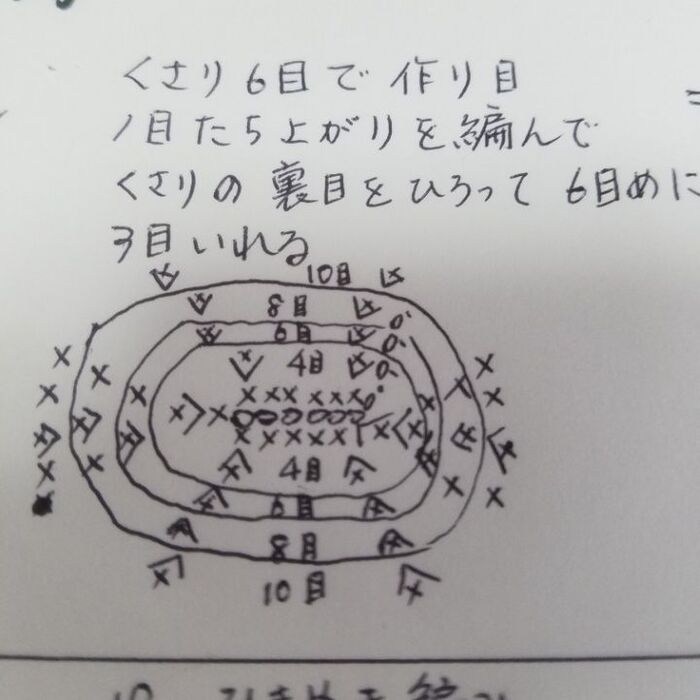 くさり6目で作り目
1目たち上がりを編んで
くさりの裏目をひろって 6目めに
3目いれる
10目
8目
6目
4目
4目
6目
8目
10目